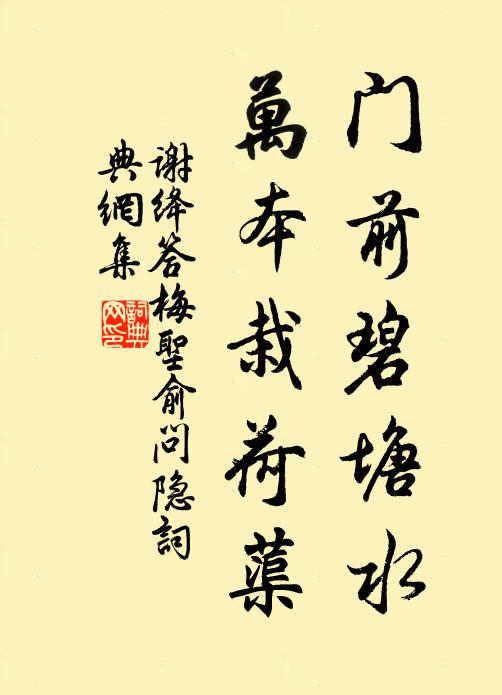 门前碧塘水
萬本栽荷蕖
谢绛答梅聖俞问隐詞
典網集
詞典
网印